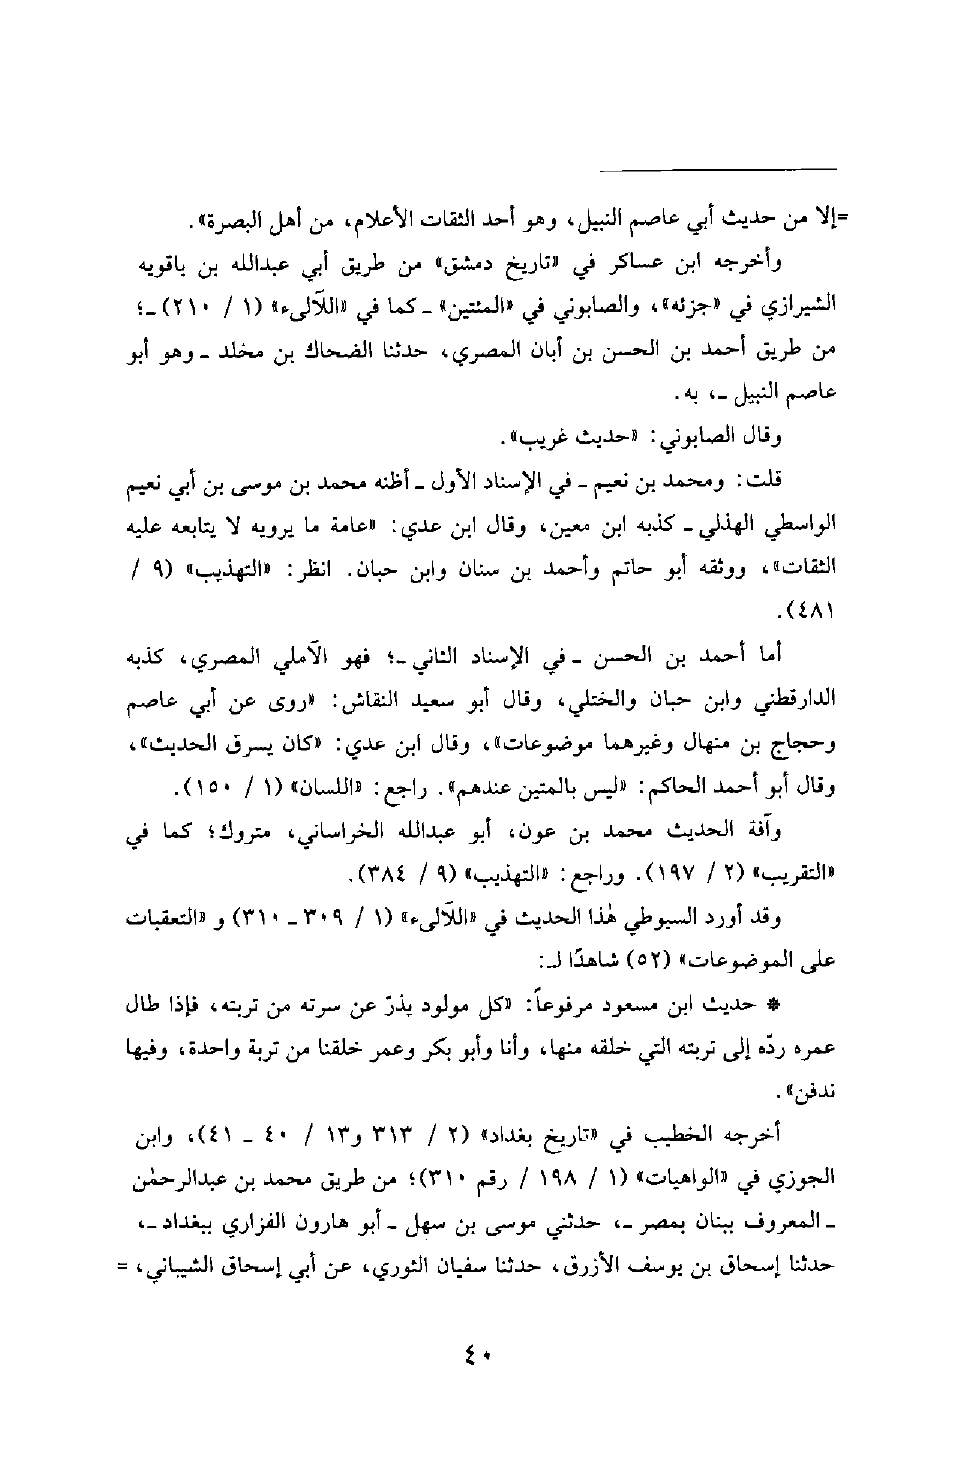 =إلا من حديث أبي عاصم النبيل، وهو أحد الثقات الأعلام، من أهل البصرة».
وأخرجه ابن عساكر في «تاريخ دمشق» من طريق أبي عبدالله بن باقويه
الشيرازي في «جزئه»، والصابوني في «المئتين» ـ كما في «اللآلىء» (١ / ٢١٠) ـ؛
من طريق أحمد بن الحسن بن أبان المصري، حدثنا الضحاك بن مخلد ـ وهو أبو
عاصم النبيل ـ، به.
وقال الصابوني: «حديث غريب».
قلت: ومحمد بن نعيم ـ في الإسناد الأول ـ أظنه محمد بن موسى بن أبي نعيم
الواسطي الهذلي ـ كذبه ابن معين، وقال ابن عدي: «عامة ما يرويه لا يتابعه عليه
الثقات»، ووثقه أبو حاتم وأحمد بن سنان وابن حبان. انظر: «التهذيب» (٩ /
٤٨١).
أما أحمد بن الحسن ـ في الإسناد الثاني ـ؛ فهو الآملي المصري، كذبه
الدارقطني وابن حبان والختلي، وقال أبو سعيد النقاش: «روى عن أبي عاصم
وحجاج بن منهال وغيرهما موضوعات»، وقال ابن عدي: «كان يسرق الحديث»،
وقال أبو أحمد الحاكم: «ليس بالمتين عندهم». راجع: «اللسان» (١ / ١٥٠).
وآفة الحديث محمد بن عون، أبو عبدالله الخراساني، متروك؛ كما في
«التقريب» (٢ / ١٩٧). وراجع: «التهذيب» (٩ / ٣٨٤).
وقد أورد السيوطي هٰذا الحديث في «اللآلىء» (١ / ٣٠٩ ـ ٣١٠) و «التعقبات
على الموضوعات» (٥٢) شاهدًا لـ:
* حديث ابن مسعود مرفوعاً: «كل مولود يذرّ عن سرته من تربته، فإذا طال
عمره ردّه إلى تربته التي خلقه منها، وأنا وأبو بكر وعمر خلقنا من تربة واحدة، وفيها
ندفن».
أخرجه الخطيب في «تاريخ بغداد» (٢ / ٣١٣ و١٣ / ٤٠ ـ ٤١)، وابن
الجوزي في «الواهيات» (١ / ١٩٨ / رقم ٣١٠)؛ من طريق محمد بن عبدالرحمٰن
ـ المعروف ببنان بمصر ـ، حدثني موسى بن سهل ـ أبو هارون الفزاري ببغداد ـ،
حدثنا إسحاق بن يوسف الأزرق، حدثنا سفيان الثوري، عن أبي إسحاق الشيباني، =
٤٠